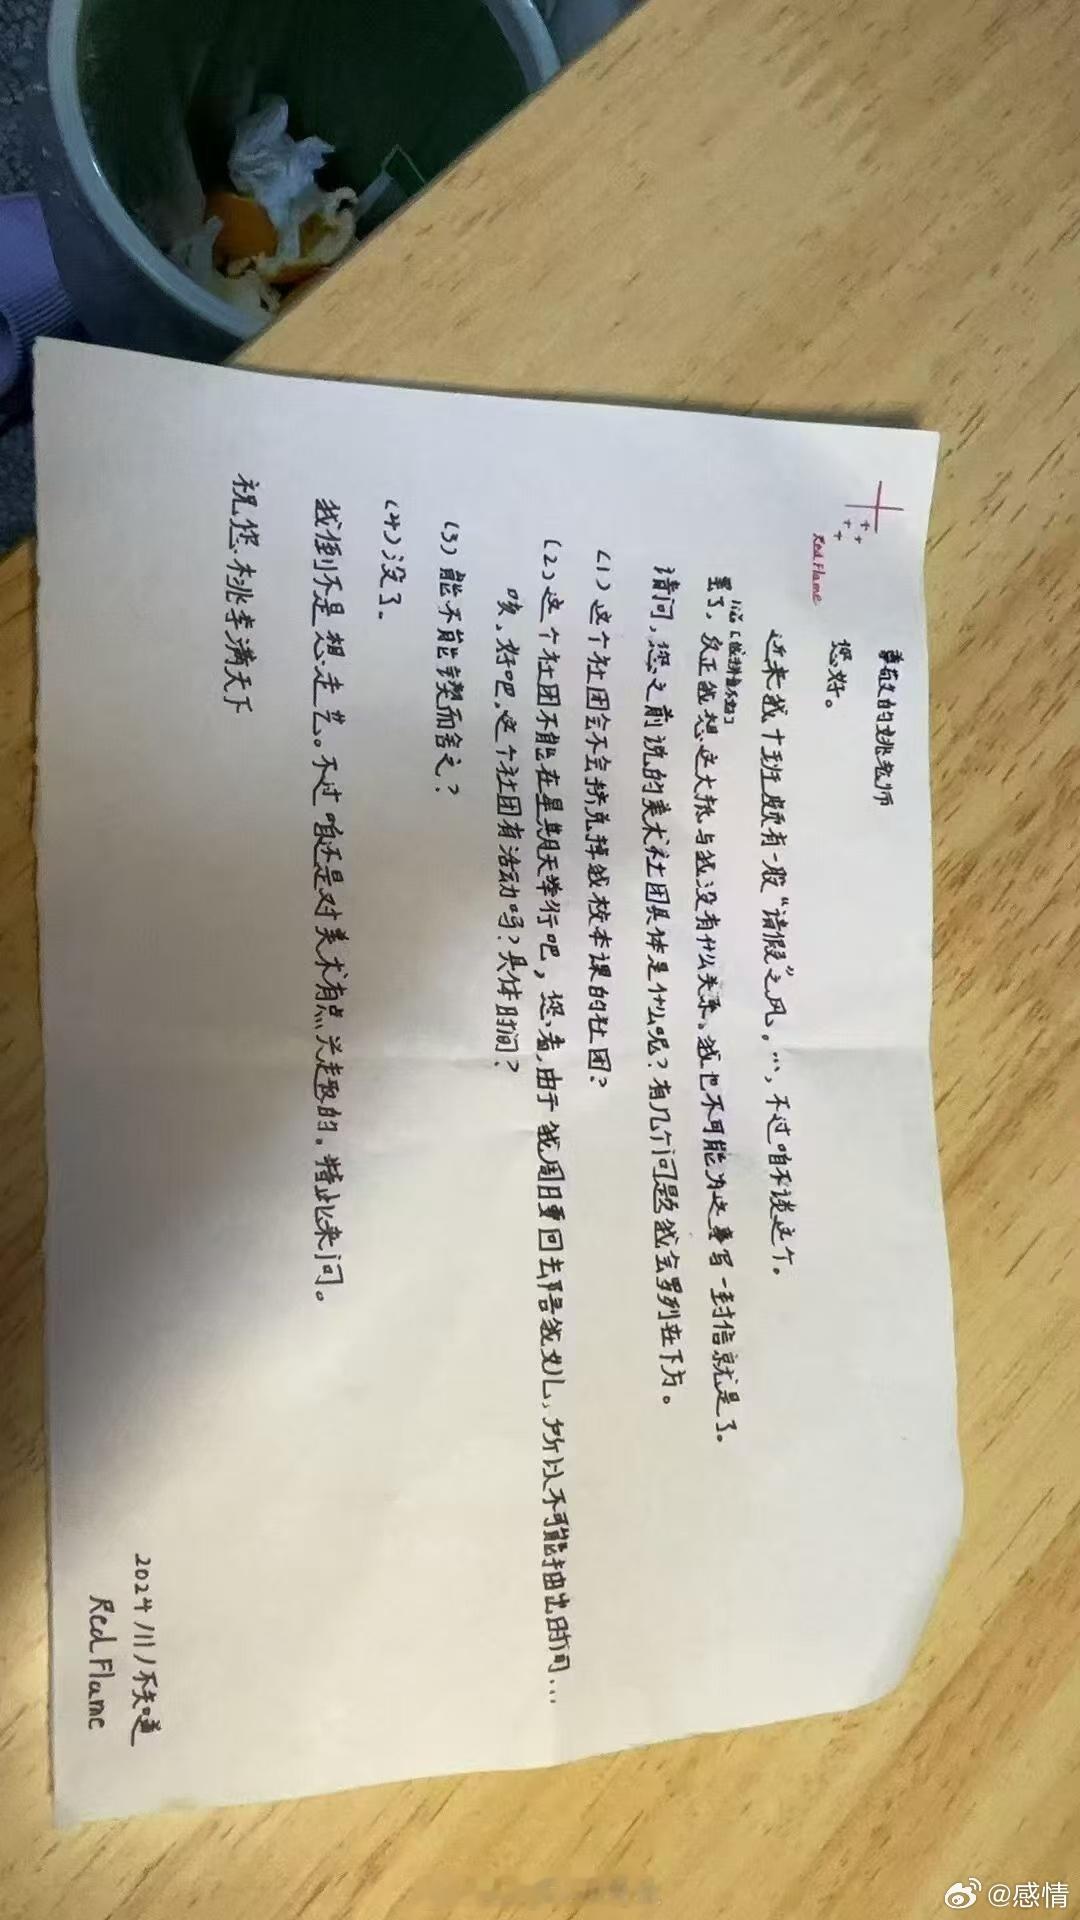 Red Flame
尊敬的姚老师
您好。
近来我十班颇有一股“请假”之风。…，不过咱不谈这个。
罢了，反正我想这大抵与我没有什么关系。我也不可能为这事写一封信就是了。
请问，您之前说的美术社团具体是什么呢？有几个问题我会罗列在下方。
(1)这个社团会不会挤兑掉我校本课的社团？
(2)这个社团不能在星期天举行吧，您看，由于我周日要回去陪我女儿，所以不可能抽出时间…
咳，好吧，这个社团有活动吗？具体时间？
(3)能不能锲而舍之？
(4)没了。
我倒不是想走艺。不过咱还是对美术有点兴趣的。特此来问。
祝您桃李满天下
2024/11/不知道
Red Flame
@感情